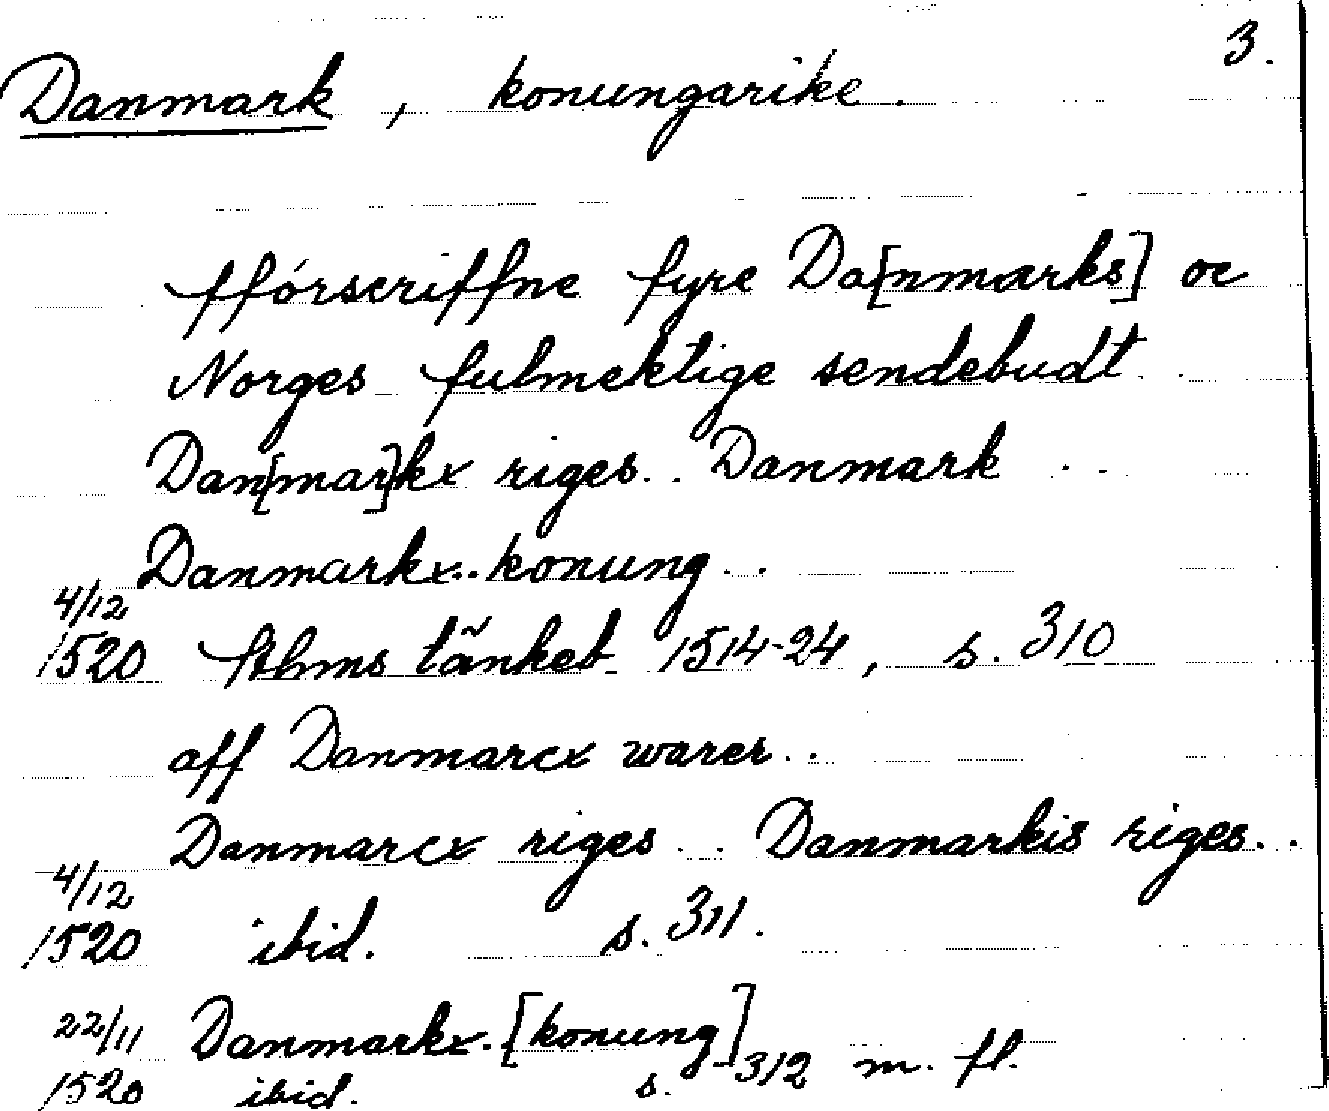 3.
Danmark, konungarike.
fförscriffne fyre Da[nmarks] oc
Norges fulmektige sendebudt
Dan[mar]kx riges.. Danmark ..
Danmarkx..konung..
4/12
1520 Sthms tänkeb 1514-24, s. 310
aff Danmarcx warer..
Danmarcx riges .. Danmarkis riges..
4/12
1520 ibid. s. 311.
22/11 Danmarkx.[konung]
1520 ibid. s. 312 m. fl.